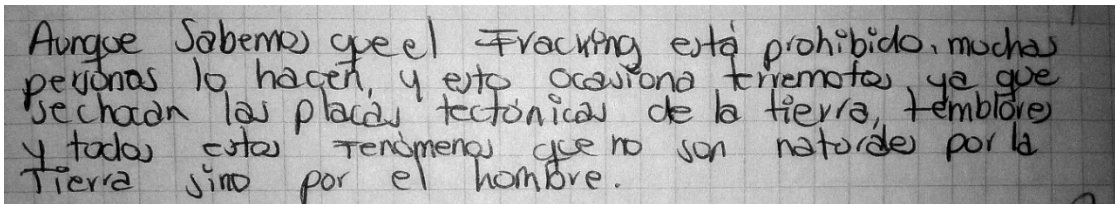 Aunque Sabemos que el Fracking está prohibido, muchas
personas lo hacen, y esto ocasiona terremotos ya que
se chocan las placas tectónicas de la tierra, temblores
y todos estos fenómenos que no son naturales por la
Tierra sino por el hombre.